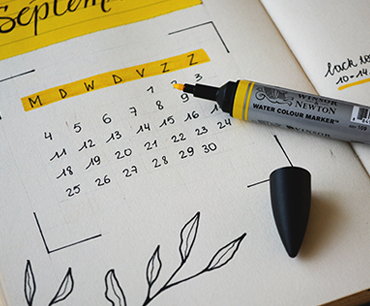 September
M D W D V Z Z
1 2 3
4 5 6 7 8 9
11 12 13 14 15 16 17
18 19 20 21 22 23 24
25 26 27 28 29 30
WINSOR
& NEWTON
WATER COLOUR MARKER™
10-14